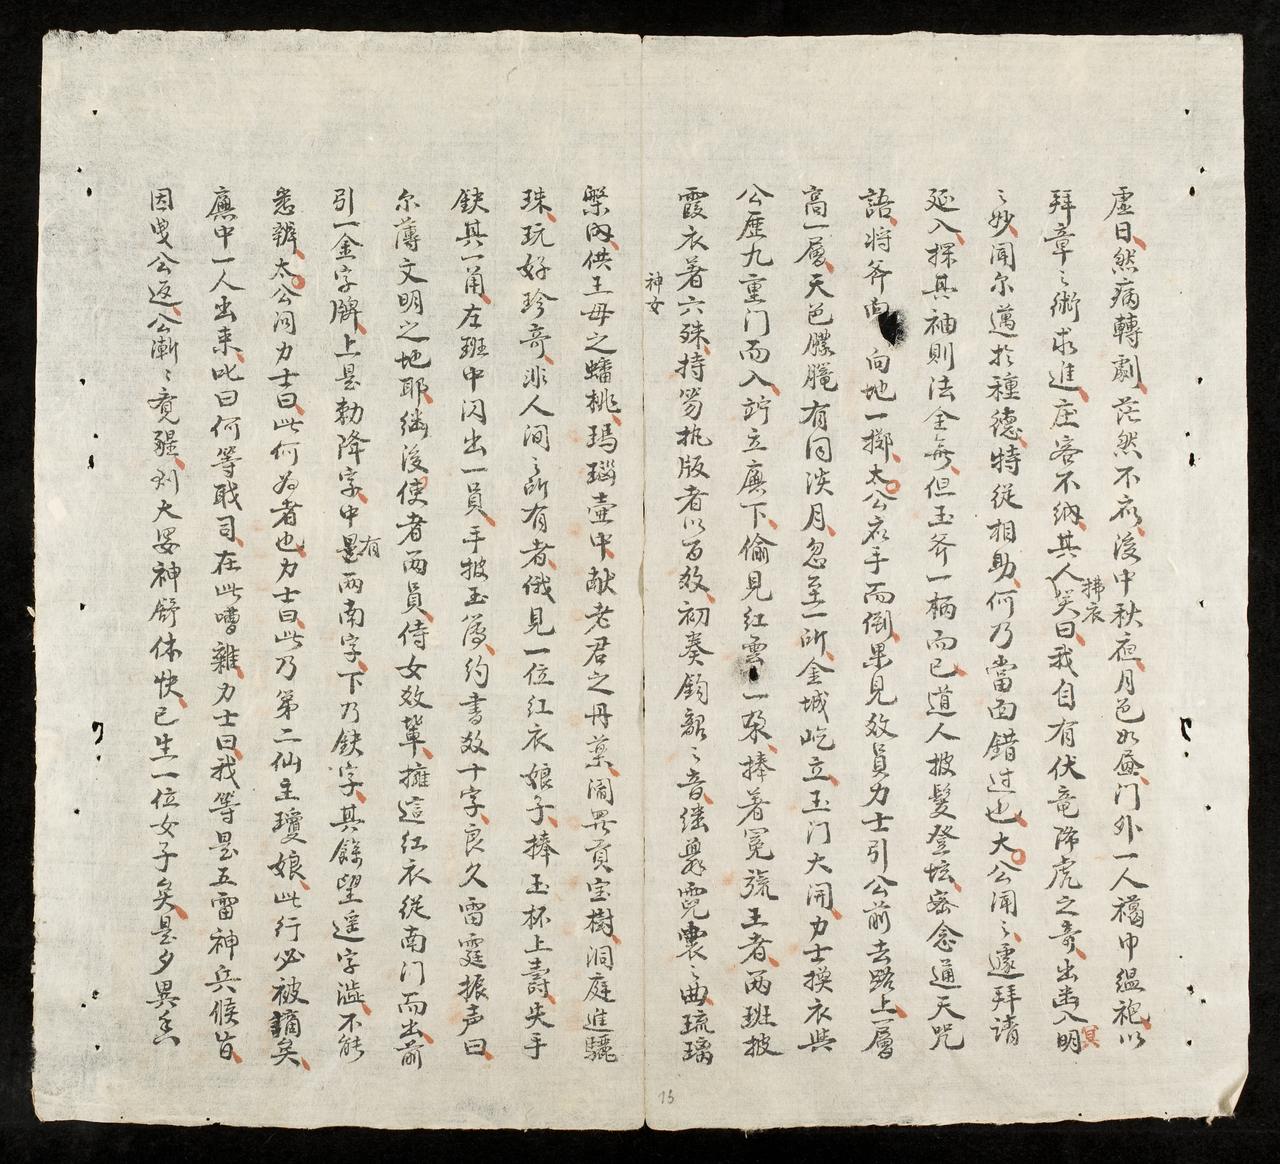 虛日然病轉劇茫然不衣後中秋夜月色如晝门外一人褐巾緼袍以
拜章〻術求進庄客不納其人拂衣笑曰我自有伏竜降虎之竒出幽入明冥
〻妙闻尔邁於種德特從相助何乃當面錯过也太公闻〻遽拜請
延入探其袖則法全無但玉斧一柄而已道人披髮登坛密念通天咒
語将斧向地一擲太公衣手而倒果見数員力士引公前去路上一層
高一層天色朦朧有同淡月忽至一所金城屹立玉门大開力士換衣與
公歷九重门而入竚立廡下偷見紅雲一朶捧着冕旒王者两班披
霞衣著六殊持笏执版者以百数初奏鈞韶〻音継舞霓裳〻曲琉璃
神女
槃内供王母之蟠桃瑪瑙壷中献老君之丹藥閬異貢宝樹洞庭進驪
珠玩好珍竒非人间〻所有者俄見一位红衣娘子捧玉杯上壽失手
鈌其一角左班中闪出一員手披玉簿約書数十字良久雷霆振声曰
尔薄文明之地耶継後使者两員侍女数輩擁這红衣従南门而出前
引一金字牌上是勅降字中有两南字下乃鈌字其餘望遥字澁不能
悉辨太公问力士曰此何为者也力士曰此乃第二仙主瓊娘此行必被謫矣
廡中一人出来叱曰何等戢司在此嘈雜力士曰我等是五雷神兵候旨
因曳公返公漸〻竟醒則大晏神舒体快已生一位女子矣是夕異香
15